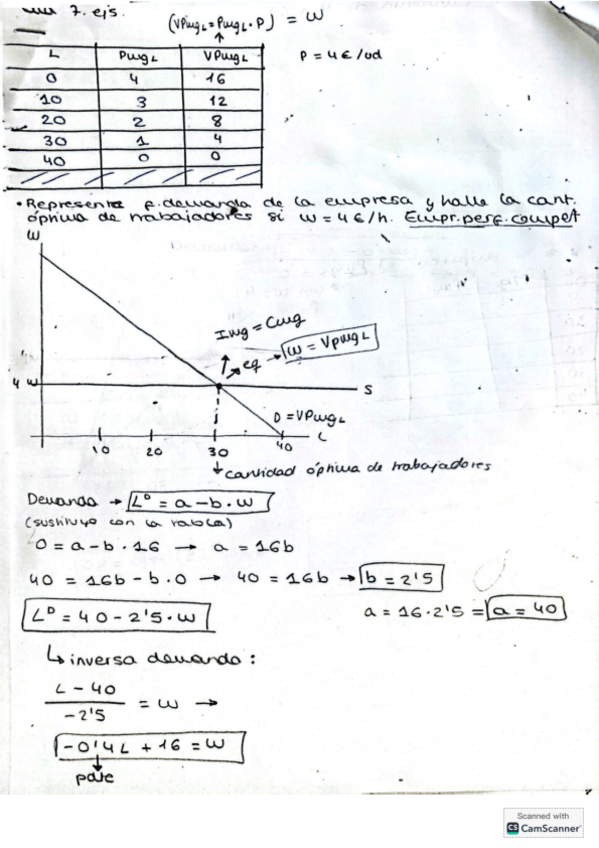 7. ejs.
(VPmgL = PmgL · P) = W
L PmgL VPmgL P = 4€/ud
0 4 16
10 3 12
20 2 8
30 1 4
40 0 0
• Represente f. demanda de la empresa y halle la cant.
óptima de trabajadores si W = 4€/h. Empr. perf. compet
W
Img = Cmg
eq → W = VPmgL
4 W
S
D = VPmgL
10 20 30 40 L
cantidad óptima de trabajadores
Demanda → L^D = a - b · W
(sustituyo con la tabla)
0 = a - b · 16 → a = 16b
40 = 16b - b · 0 → 40 = 16b → b = 2'5
L^D = 40 - 2'5 · W a = 16 · 2'5 = a = 40
↳ inversa demanda:
L - 40 / -2'5 = W →
-0'4L + 16 = W
Scanned with
CS CamScanner